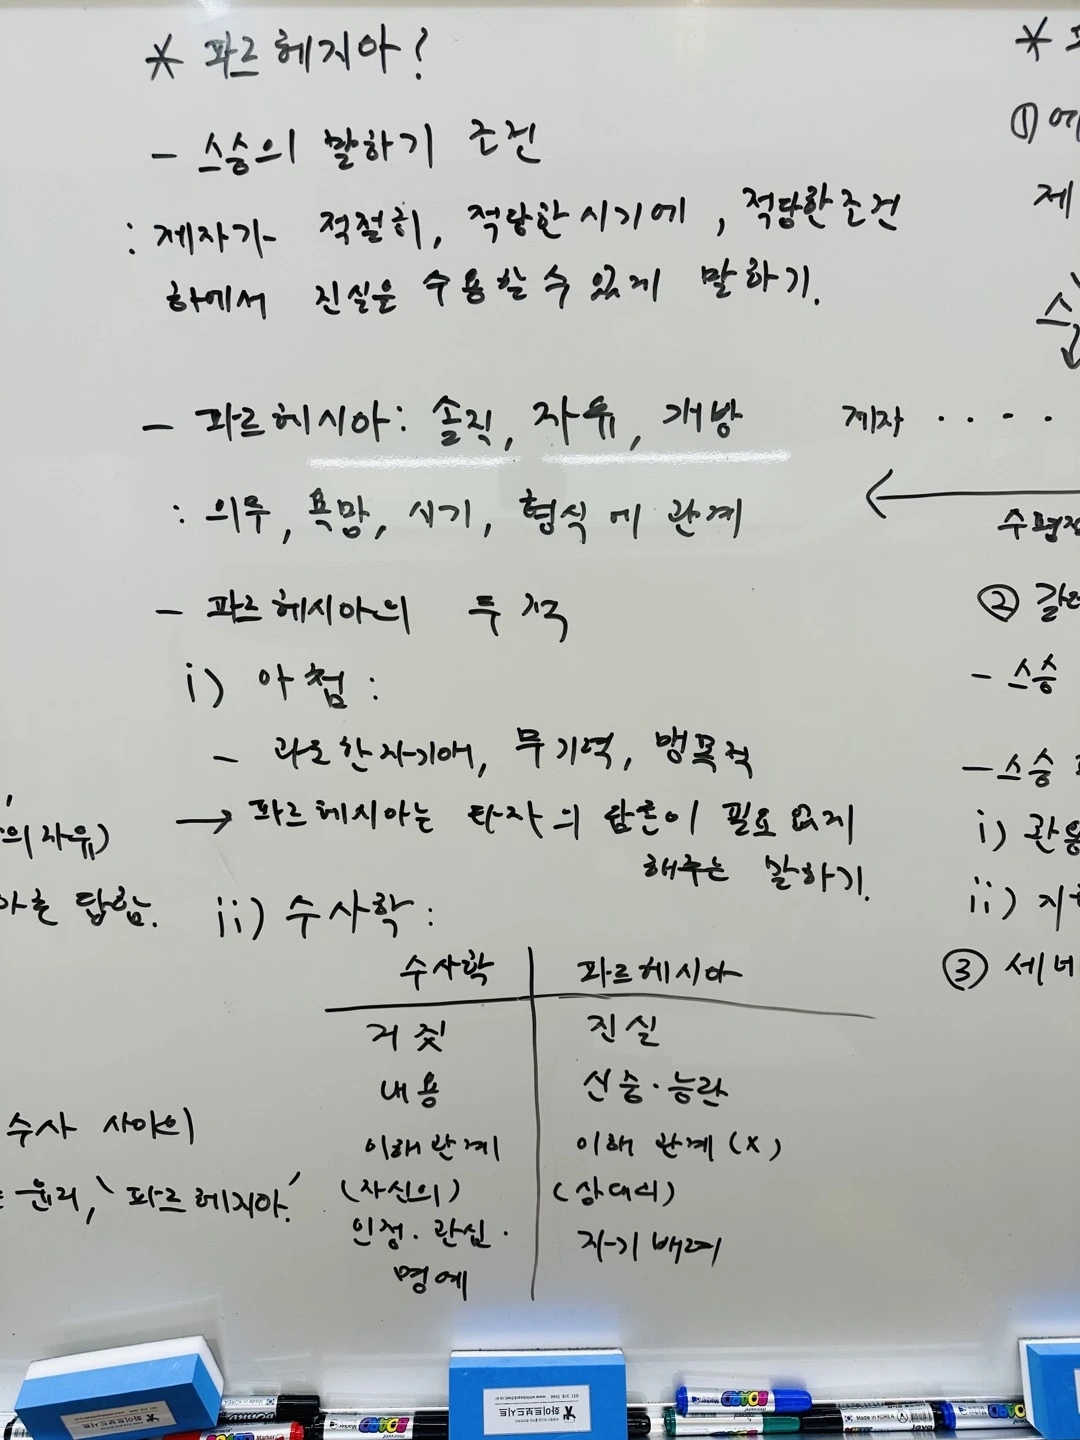 * 파르헤지아?
- 스승의 말하기 조건
: 제자가 적절히, 적당한 시기에, 적당한 조건
하에서 진실을 수용할 수 있게 말하기.
- 파르헤시아: 솔직, 자유, 개방
: 의무, 욕망, 시기, 형식에 관계
- 파르헤시아의 두 적
i) 아첨:
- 과도한 자기애, 무기력, 맹목적
→ 파르헤시아는 타자의 담론이 필요 없게
해주는 말하기.
ii) 수사학:
수사학 | 파르헤시아
거짓 | 진실
내용 | 신중·능란
이해관계 | 이해 관계 (x)
(자신의) | (상대의)
인정·관심· | 자기배려
명예
의 자유)
답함.
수사 사이의
윤리, '파르헤지아'
*
① 에
제
스
제자 ....
←
수평적
②
- 스승
- 스승
i) 관용
ii)
③ 세네
화이트보드시트
BOARD
Marker